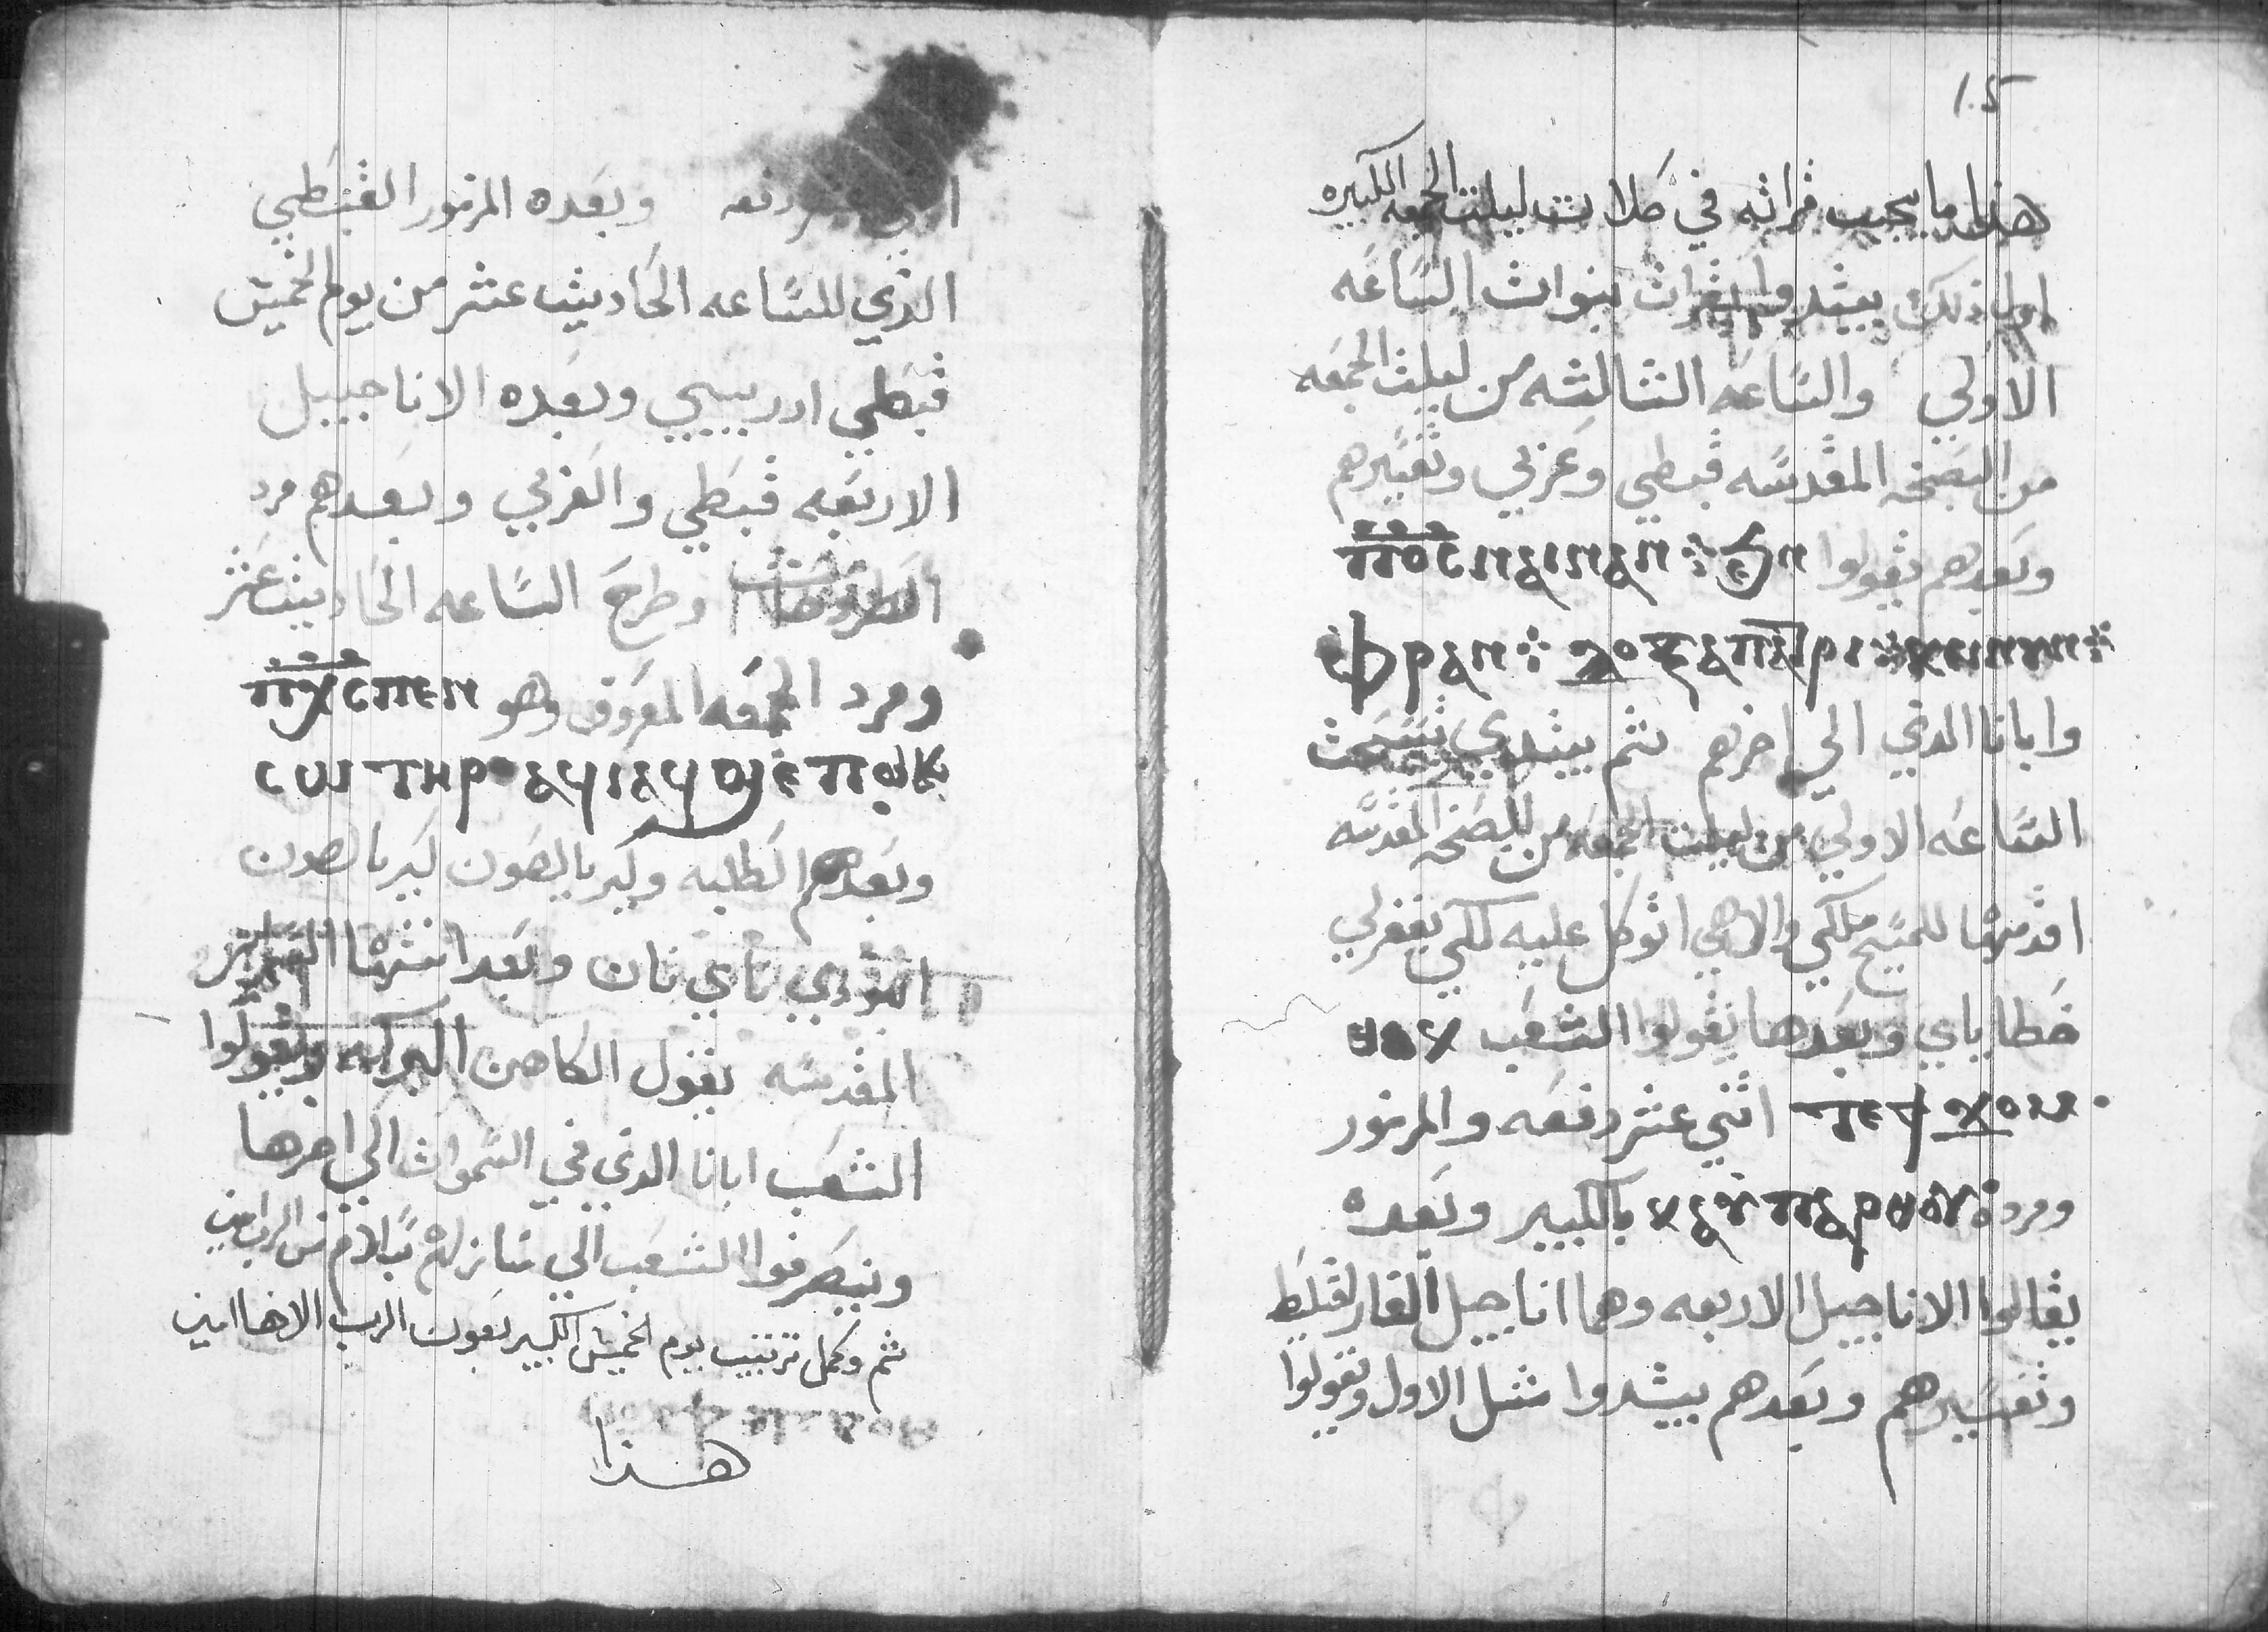 1.5
هذا ما يجب قراته في صلات ليلت الجمعه الكبيره
اول ذلك يبتدوا بقرات نبوات الساعه
الاولي والساعه الثالثه من ليلت الجمعه
من البصخه المقدسه قبطي وعربي وتفسيرهم
وبعدهم يقولوا ⲡⲟ̅ⲥ̅ ⲛⲁⲓ ⲛⲁⲛ ϧⲉⲛ
ⲫⲣⲁⲛ ⲇⲟⲝⲁⲡⲁⲧⲣⲓ ⲕⲉⲛⲩⲛ
وابانا الدي الي اخرهم ثم يبتدي تسبحت
الساعه الاولي من ليلت الجمعه من البصخه المقدسه
اقدمها للمسيح ملكي والاهي اتوكل عليه لكي يغفرلي
خطاياي وبعدها يقولوا الشعب ⲑⲱⲕ
ⲧⲉ ϯϫⲟⲙ اثني عشر دفعه والمزمور
ومرد ⲕⲉ ⲩⲡⲉⲣⲧⲟⲩ بالكبير وبعده
يقالوا الاناجيل الاربعه وهما اناجيل الفارقليط
وتفسيرهم وبعدهم يبتدوا متل الاول ويقولوا
دفعه وبعده المزمور القبطي
الدي للساعه الحاديت عشر من يوم الخميس
قبطي ادريبي وبعده الاناجيل
الاربعه قبطي والعربي وبعدهم مرد
الطروحات وطرح الساعه الحاديت عشر
ومرد الجمعه المعروف وهو ⲡⲭ̅ⲥ̅ ⲡⲉⲛ
ⲥⲱⲧⲏⲣ ⲁϥⲓ ⲁϥϣⲉⲡⲙⲕ
وبعدهم الطلبه وكيرياليصون كيريالصون
افنودي ناي نان وبعد انتهاا السراير
المقدسه يقول الكاهن البركه ويقولوا
الشعب ابانا الدي في السموات الي اخرها
وينصرفوا الشعب الي منازلهم بسلام من الرب امين
تم وكمل ترتيب يوم الخميس الكبير بعون الرب الاهنا امين
هذا